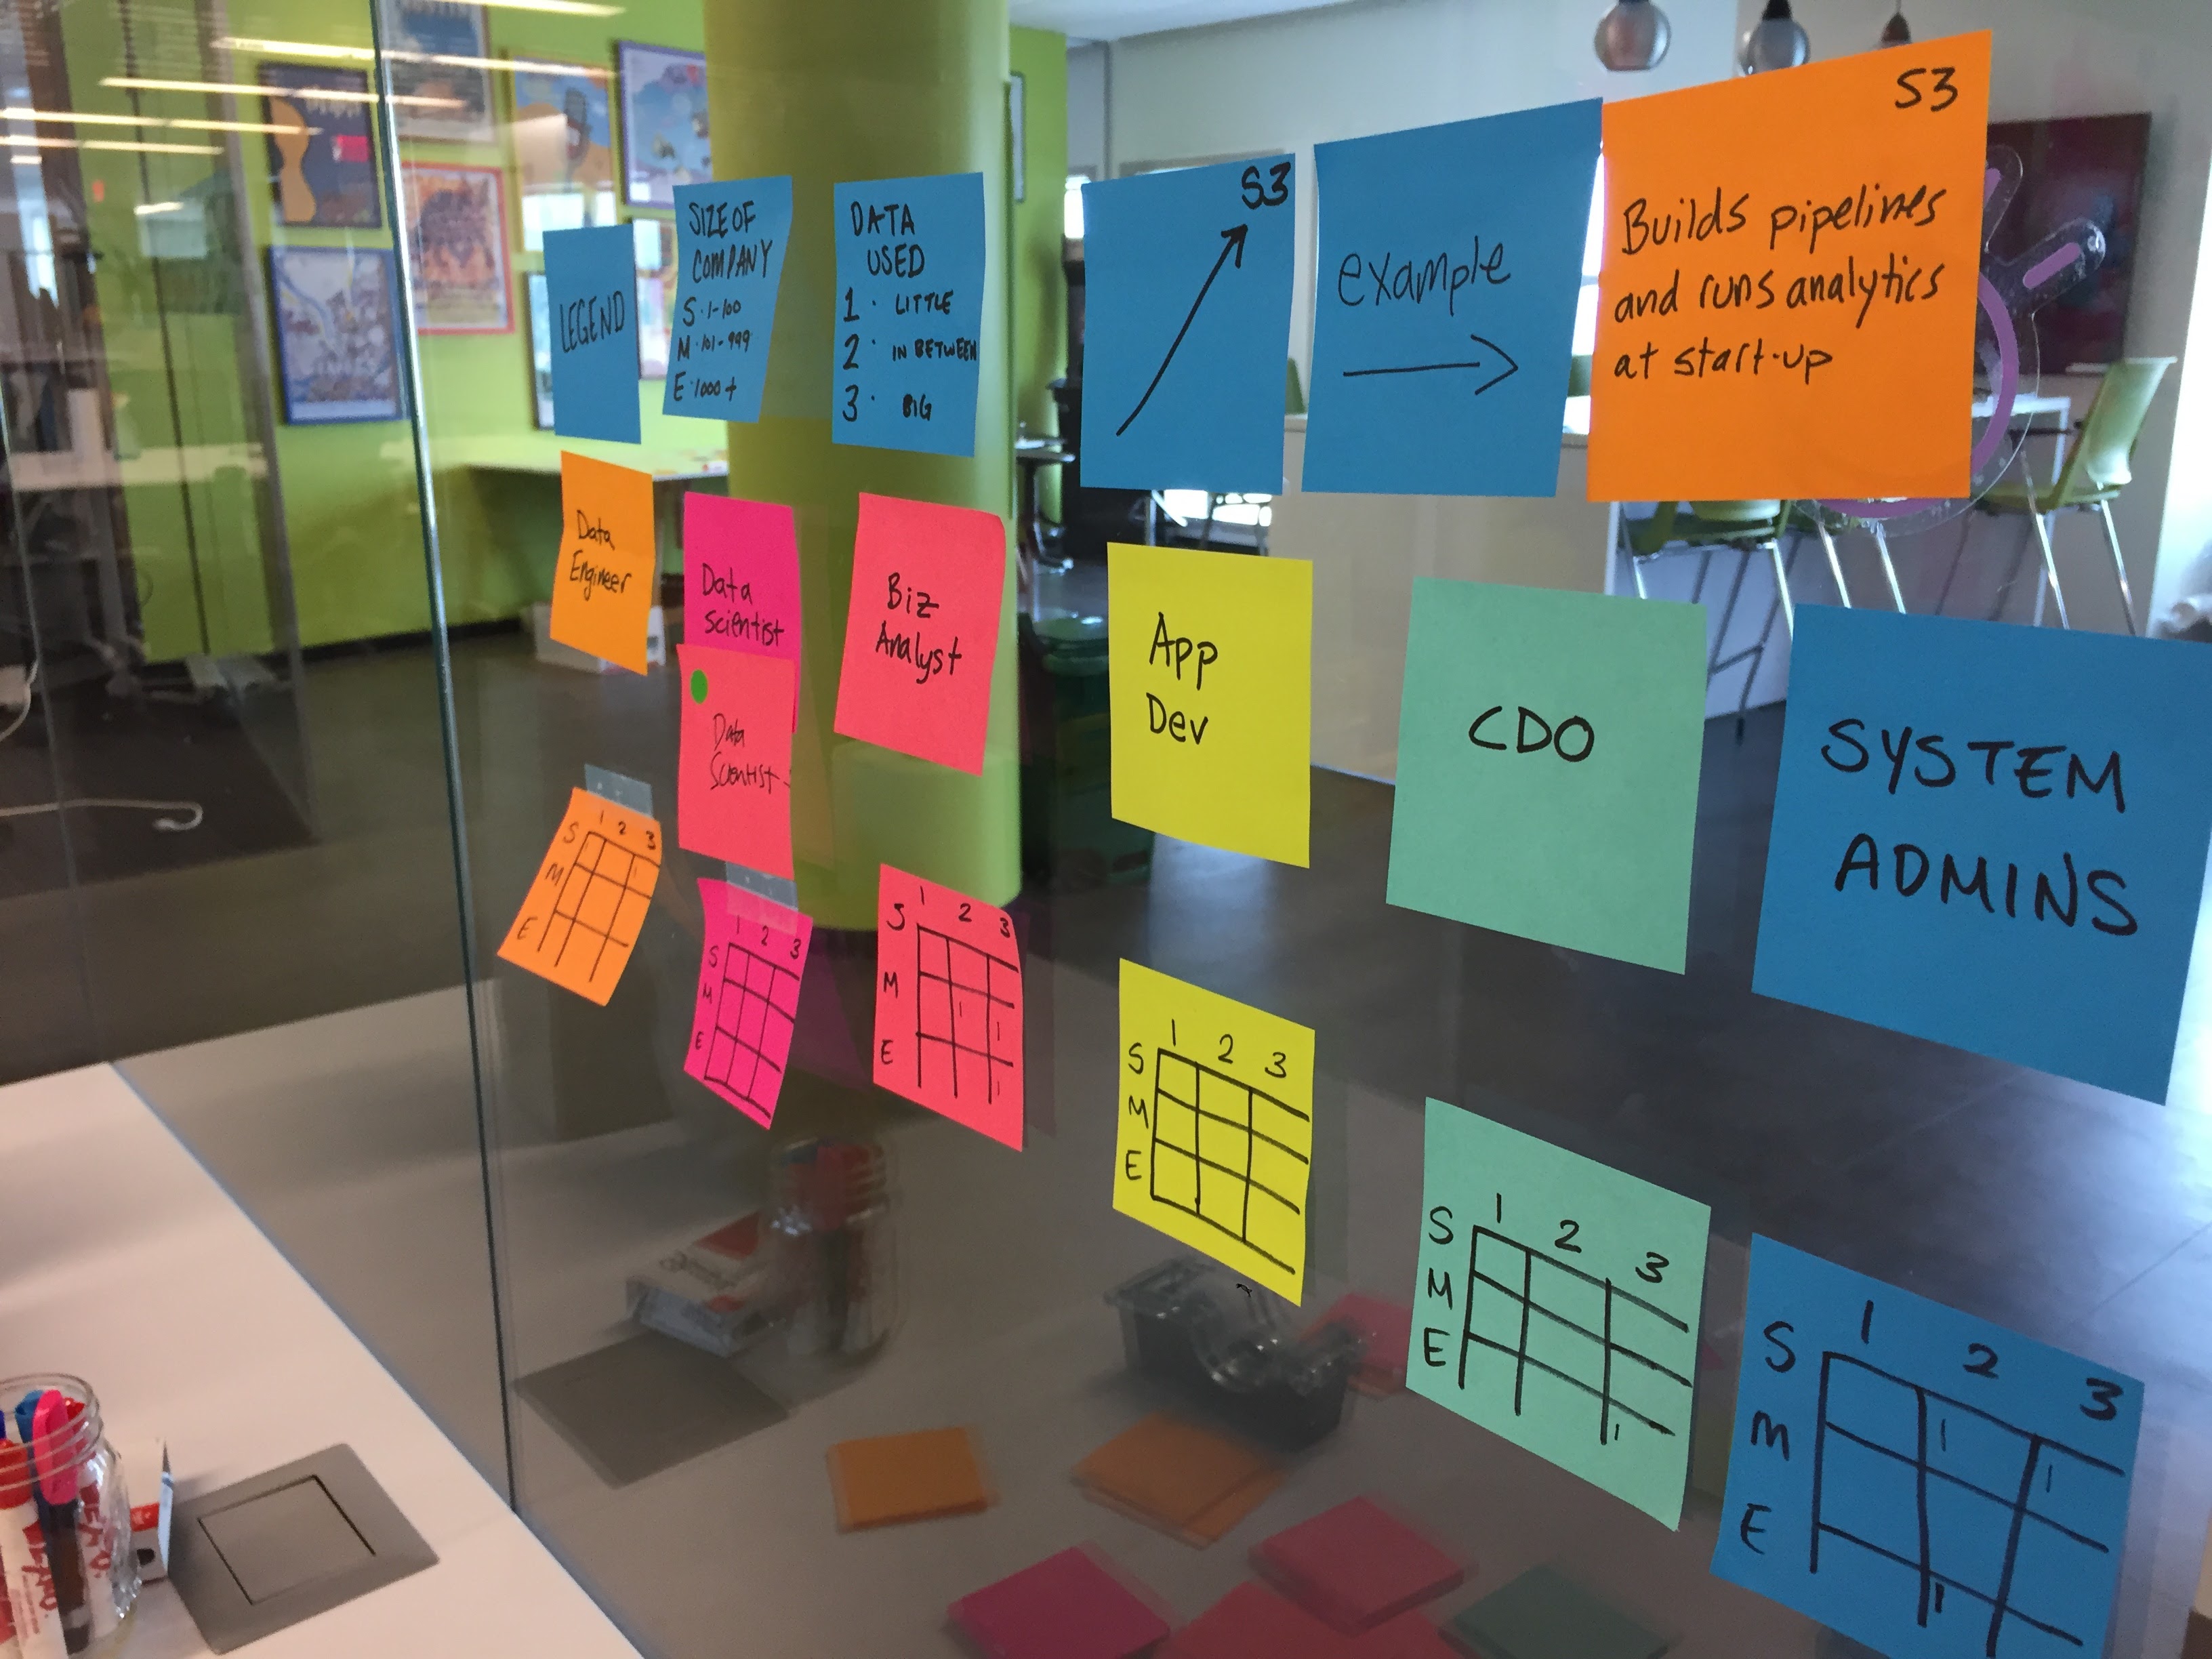 LEGEND
SIZE OF
COMPANY
S · 1-100
M · 101-999
E · 1000+
DATA
USED
1 · LITTLE
2 · IN BETWEEN
3 · BIG
S3
example
S3
Builds pipelines
and runs analytics
at start-up
Data
Engineer
Data
scientist
Data
Scientist
Biz
Analyst
App
Dev
CDO
SYSTEM
ADMINS
1 2 3
S
M
E
1 2 3
S
M
E
1 2 3
S
M
E
1 2 3
S
M
E
1 2 3
S
M
E
1 2 3
S
M
E